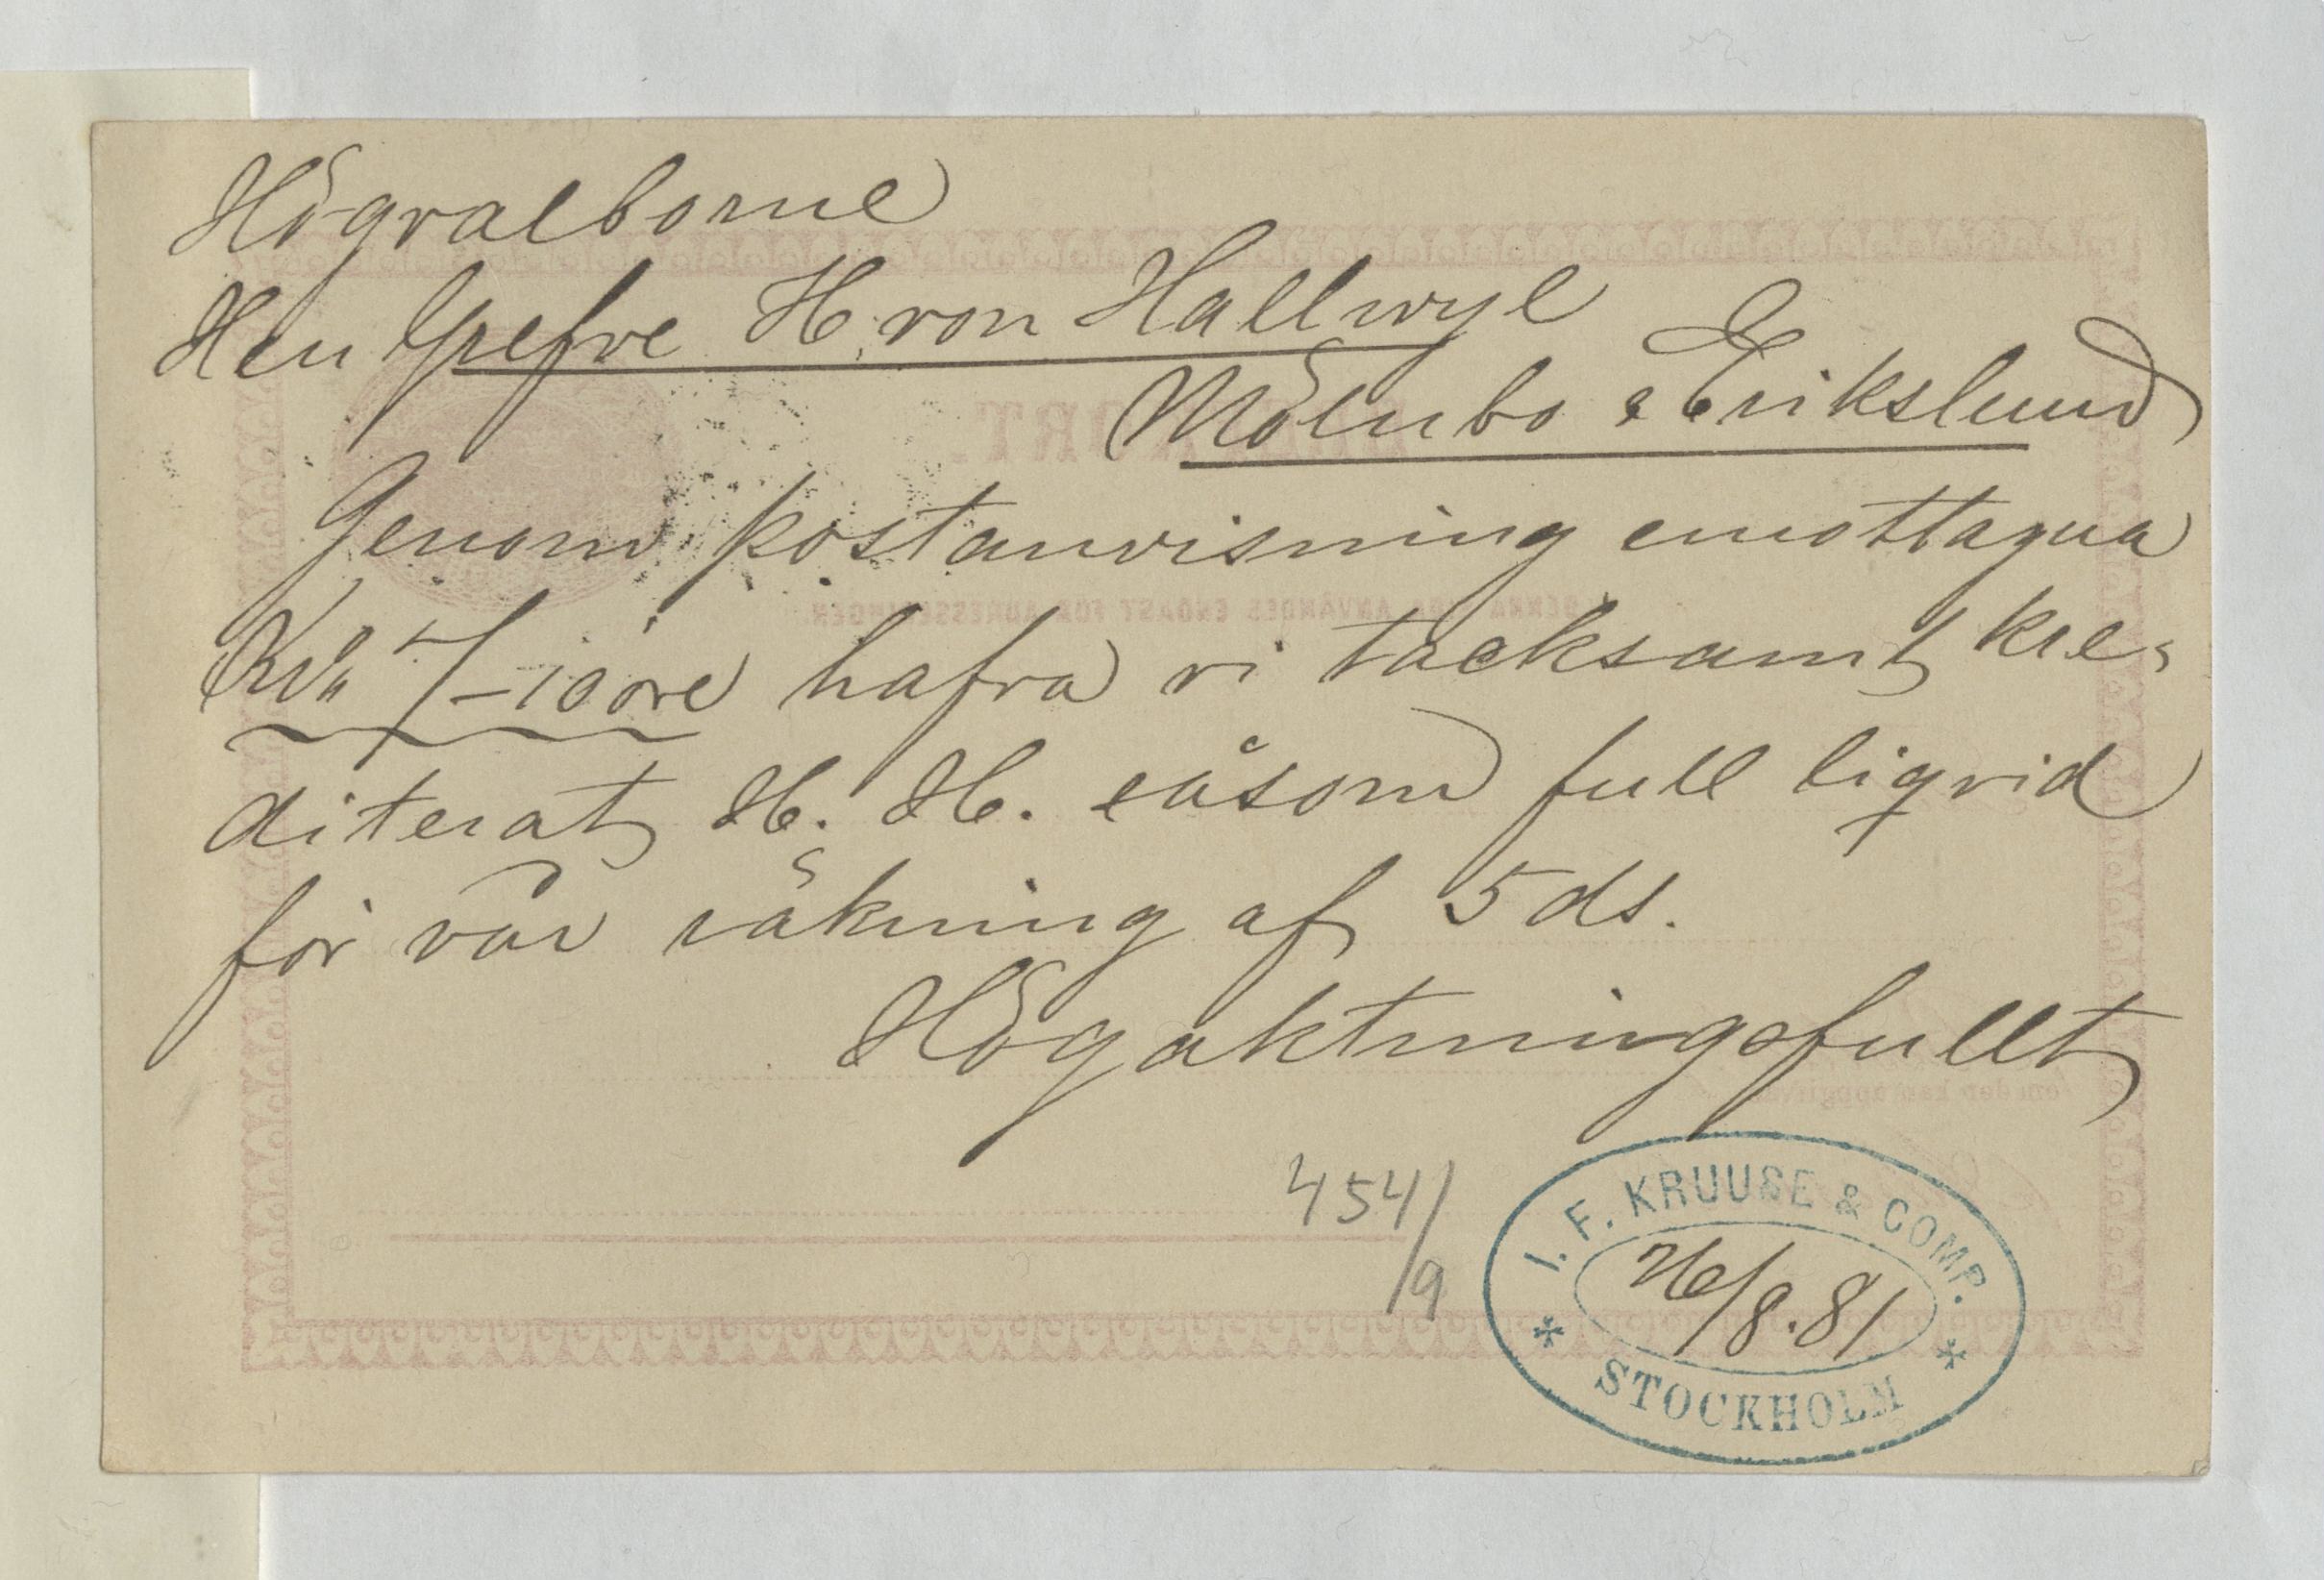 Högvälborne
Herr Grefve H. von Hallwyl
Mölnbo & Erikslund
Genom postanvisning emottagna
Kr 7-10 öre hafva vi tacksamt kre-
diterat H. H. såsom full liqvid
för vår räkning af 5 ds.
Högaktningsfullt
454/9
I. F. KRUUSE & COMP.
26/8.81
STOCKHOLM